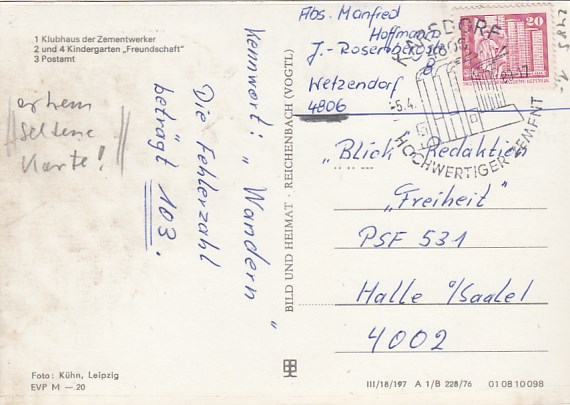 1 Klubhaus der Zementwerker
2 und 4 Kindergarten „Freundschaft"
3 Postamt
Kennwort: „Wandern"
Die Fehlerzahl
beträgt 103.
Seltene
Karte!
Foto: Kühn, Leipzig
EVP M —.20
BILD UND HEIMAT · REICHENBACH (VOGTL)
Abs. Manfred
Hoffmann
J.-Rosenberg
8
Wetzendorf
4806
KARSDORF
-5.4.
HOCHWERTIGER ZEMENT
20
„Blick" Redaktion
„Freiheit"
PSF 531
Halle a/Saale
4002
III/18/197 A 1/B 228/76 01 08 10 098